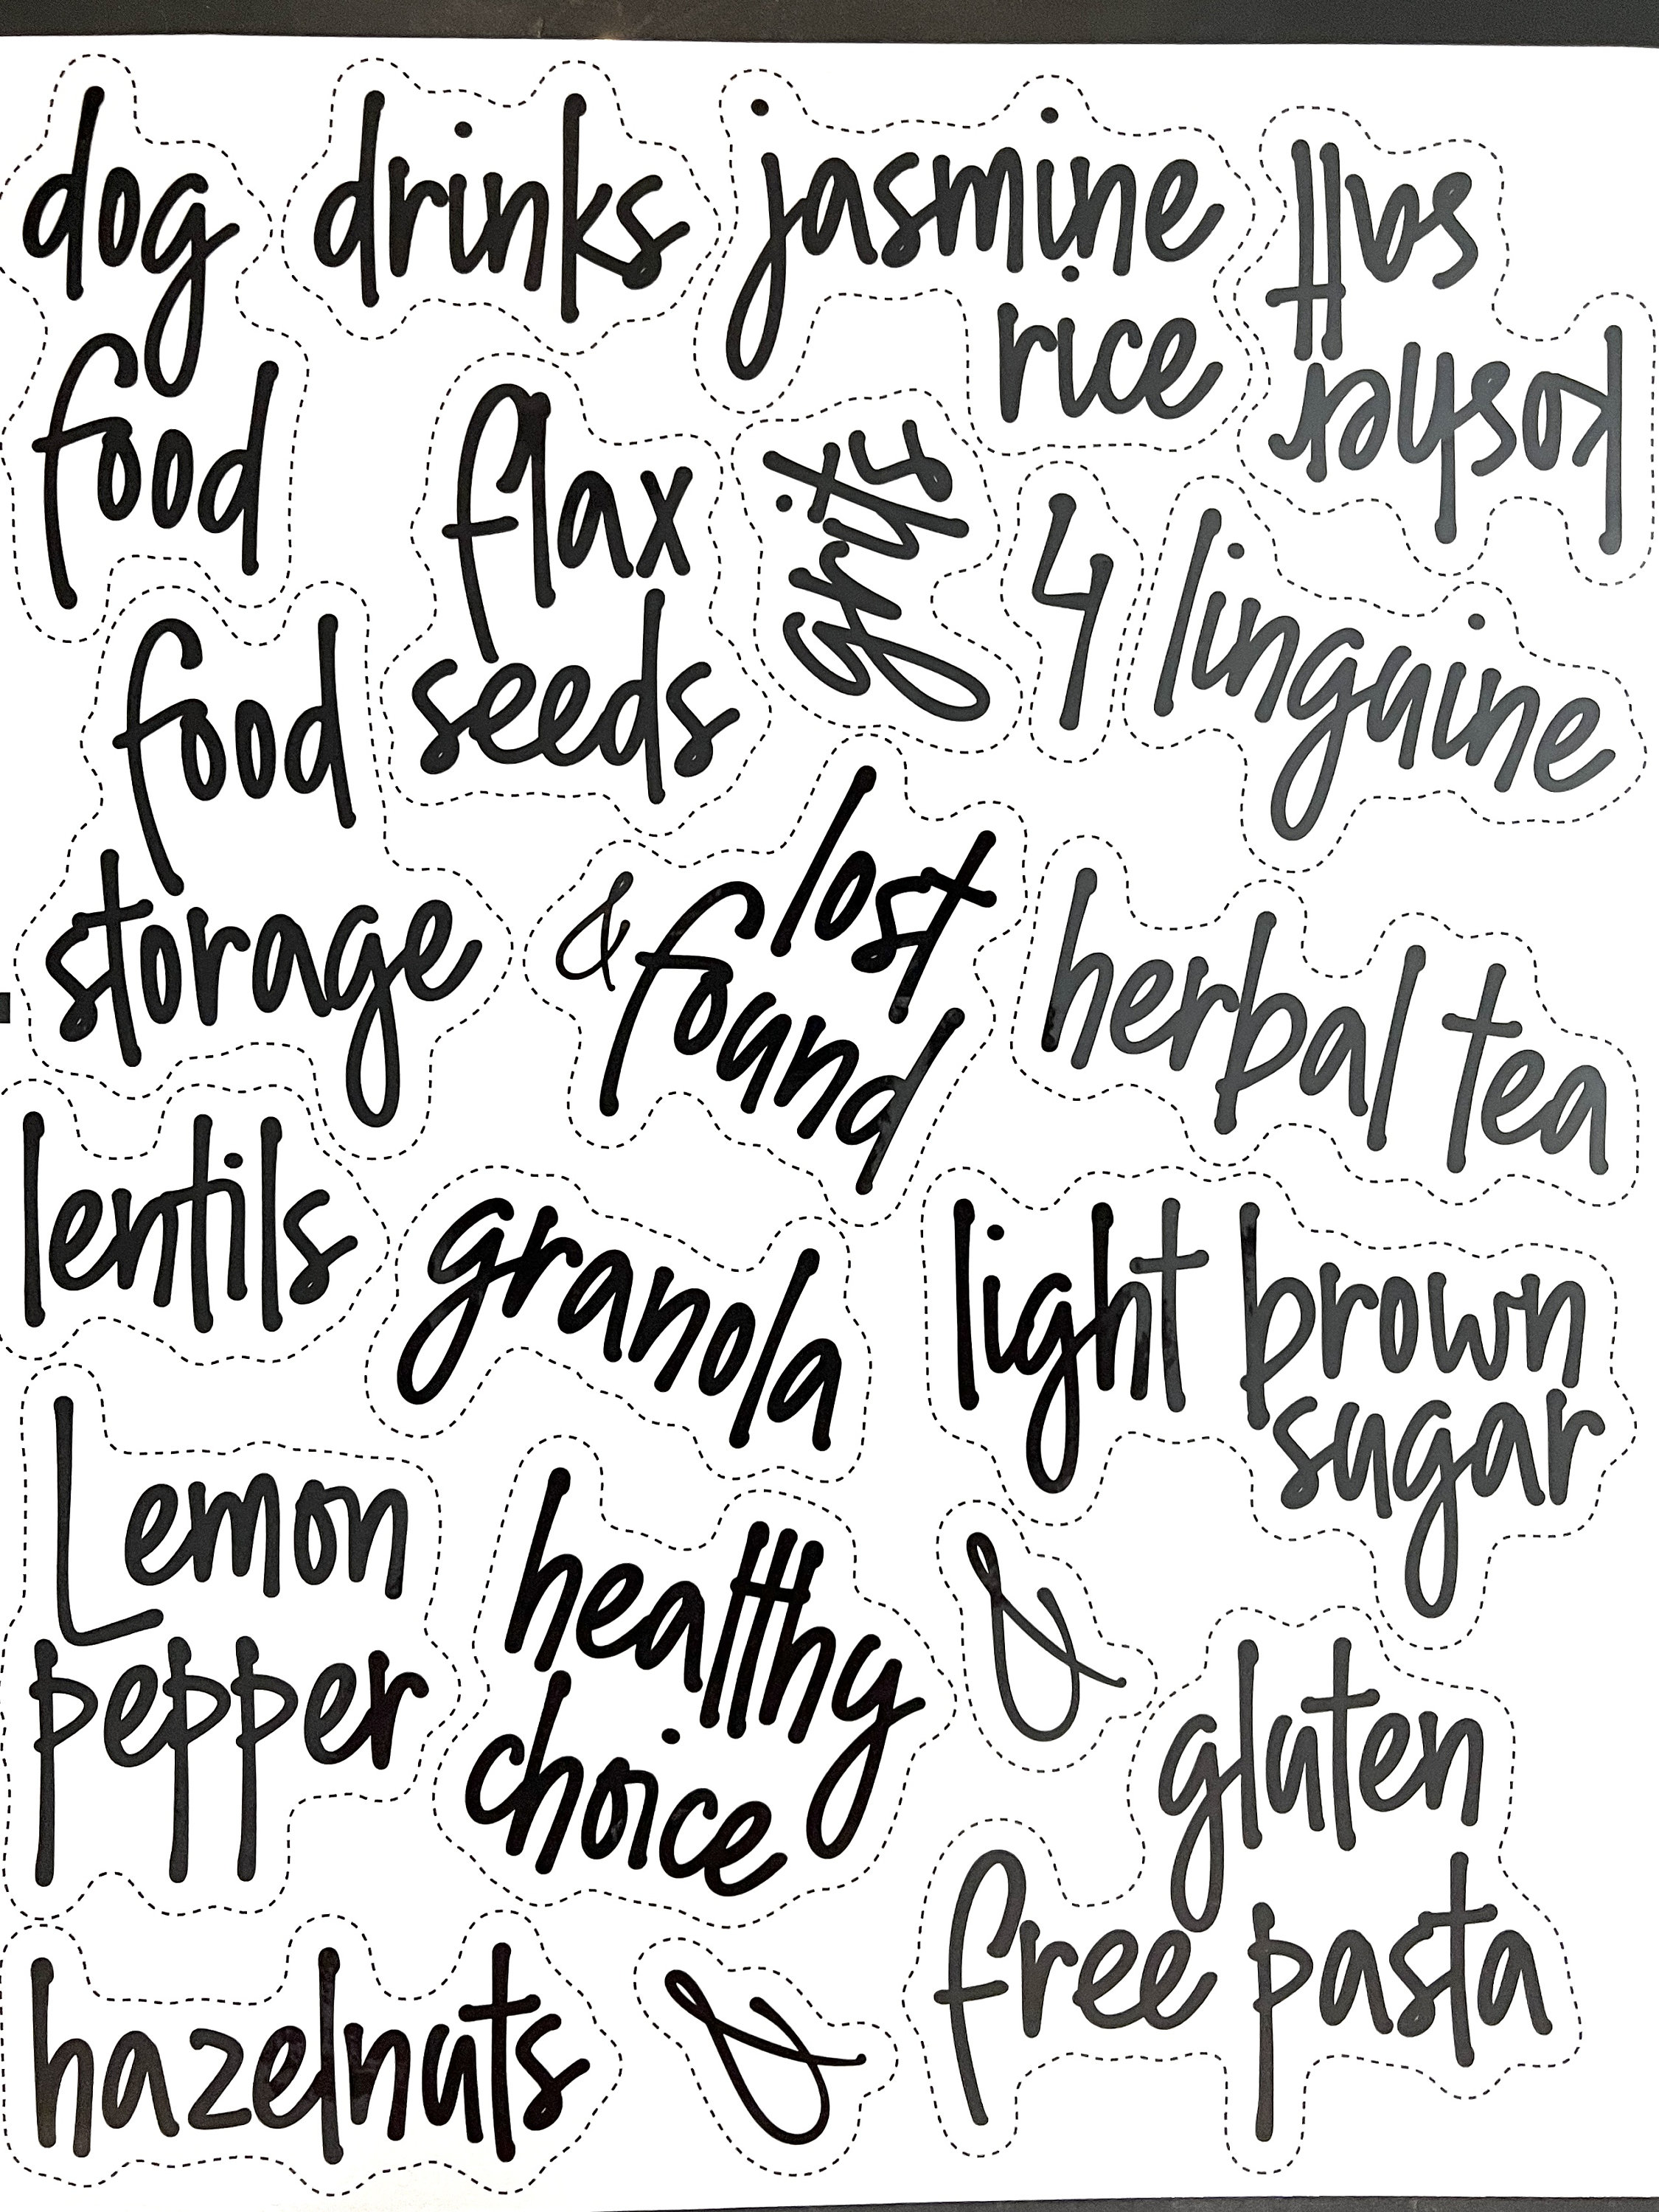 dog
food
drinks
jasmine
rice
kosher
salt
flax
seeds
grits
4
linguine
food
storage
lost
& found
herbal tea
lentils
granola
light brown
sugar
Lemon
pepper
healthy
choice
&
gluten
free pasta
hazelnuts
&